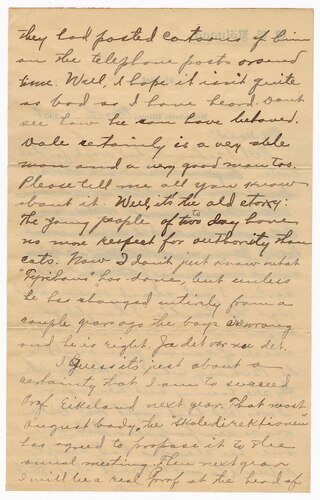 they had posted cartoons of him
on the telephone posts around
town. Well, I hope it isn't quite
as bad as I have heard. Don't
see how he can have behaved.
Dale certainly is a very able
man and a very good man too.
Please tell me all you know
about it. Well, it's the old story:
The young people of two day have
no more respect for authority than
cats. Now I don't just know what
has done, but unless
he has changed entirly from a
couple years ago the boys is wrong
and he is right. Ja det var nu det.
I guess it's just about a
certainty that I am to succeed
Prof. Eikeland next year. That most
august body, the "Skoledirektionen"
has agreed to propose it to the
annual meeting. Then next year
I will be a real Prof at the head of